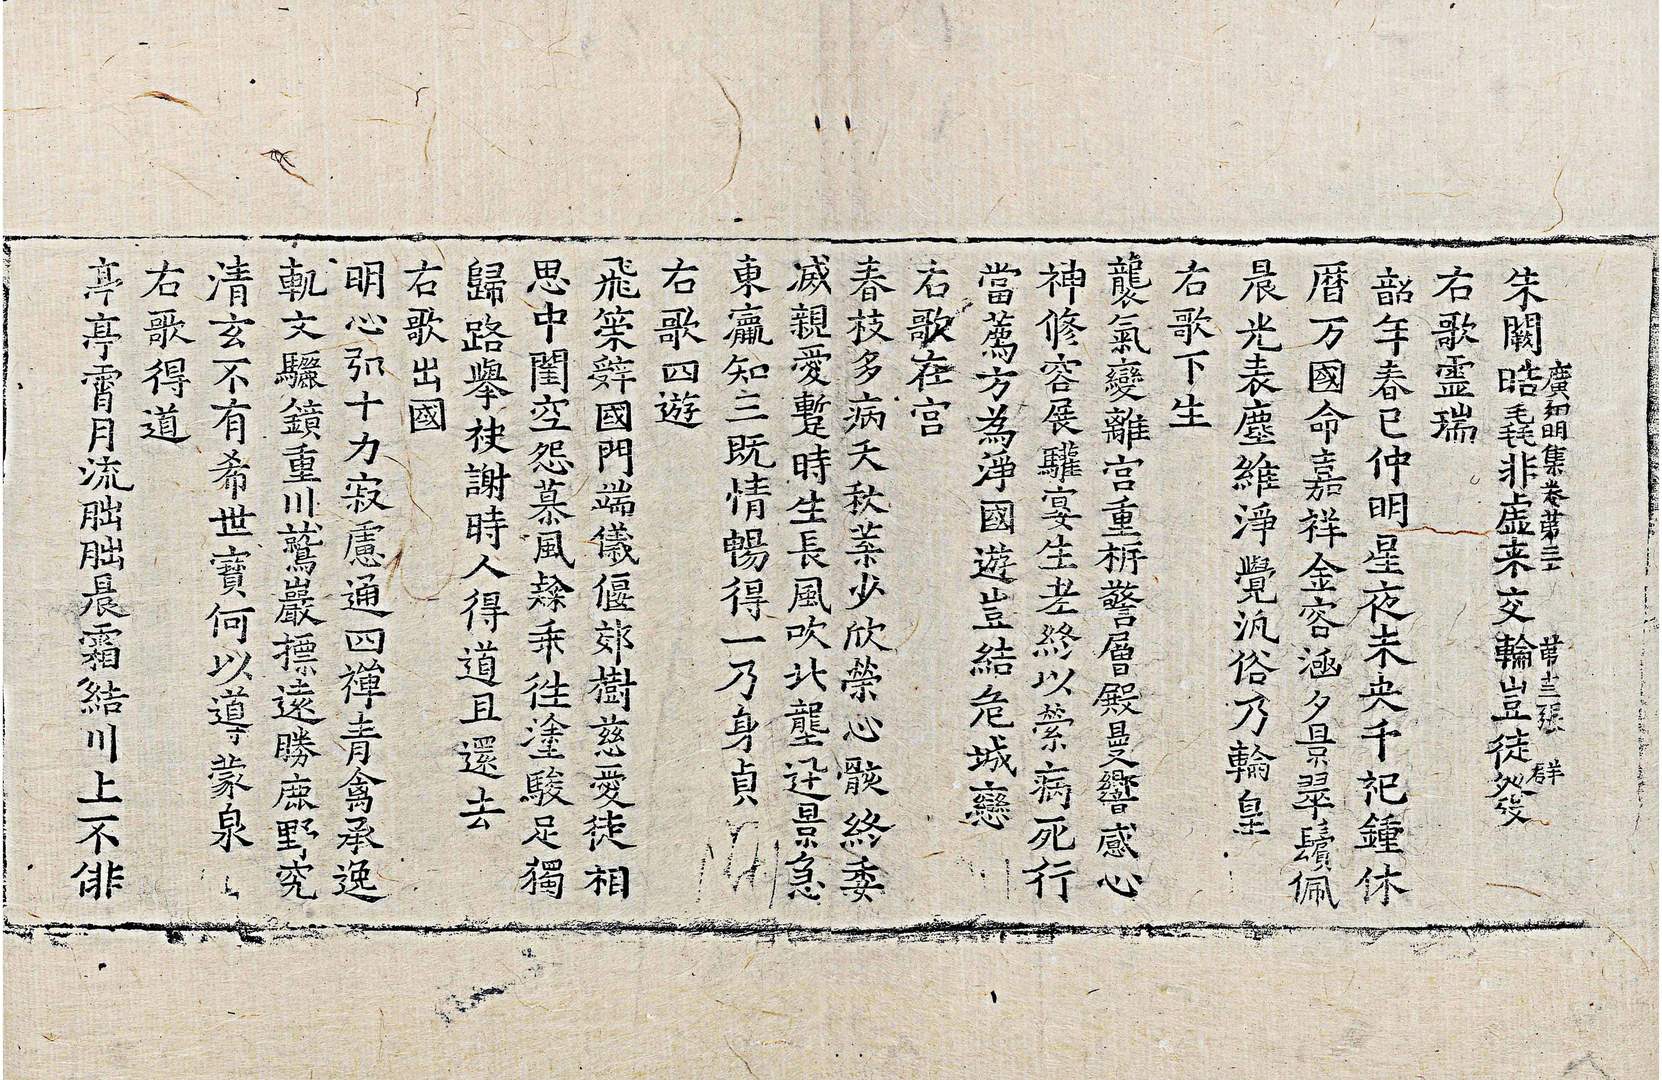 朱闕皓毳非虛来交輪豈徒發
廣弘明集卷第三十 第十三張 群
右歌靈瑞
韶年春已仲明星夜未央千祀鍾休
曆万國命嘉祥金容涵夕景翠鬢佩
晨光表塵維淨覺汎俗乃輪皇
右歌下生
襲氣變離宮重柝警層殿曼響感心
神修容展驩宴生老終以縈病死行
當薦方為淨國遊豈結危城戀
右歌在宮
春枝多病夭秋葉少欣榮心骸終委
滅親愛暫時生長風吹北壟迅景急
東瀛知三既情暢得一乃身貞
右歌四遊
飛策辭國門端儀偃郊樹慈愛徒相
思中閨空怨慕風隸乘往塗駿足獨
歸路舉袂謝時人得道且還去
右歌出國
明心弘十力寂慮通四禪青禽承逸
軌文驪鏡重川鷲巖標遠勝鹿野究
清玄不有希世寶何以導蒙泉
右歌得道
亭亭霄月流朏朏晨霜結川上不俳